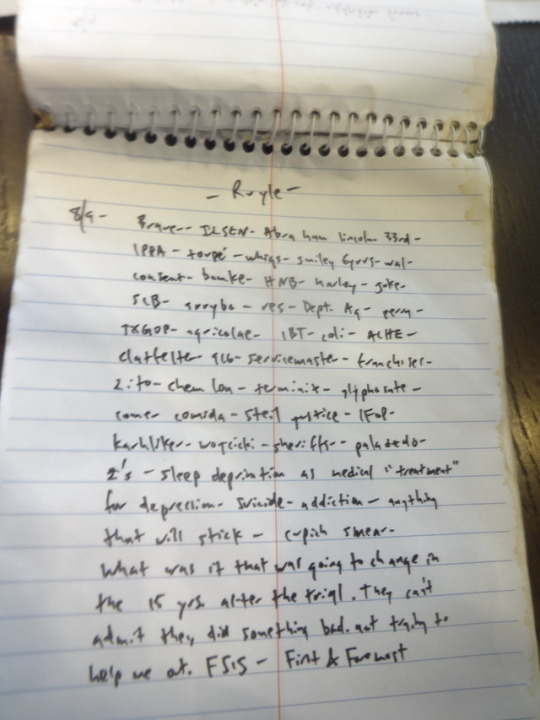 - Royle -
8/9 - Brauer - ILSEN - Abraham Lincoln 33rd -
IPPA - toupé - whigs - smiley 6yrs - wal -
consent - bumke - HNB - harley - joke -
SCB - res - Dept. Ag - perm -
TXGOP - agricolae - IBT - coli - ACHE -
clatfelter - servicemaster - franchises -
2:to - chem lon - terminix - glyphosate -
comer - comida - steil justice - IFOP -
karhliker - wojcicki - sheriffs - palazzdo -
2's - sleep deprivation as medical "treatment"
for depression - suicide - addiction - anything
that will stick - cupich smear -
What was it that was going to change in
the 15 yrs after the trial. They can't
admit they did something bad. not trying to
help me at. FSIS - First & Foremost